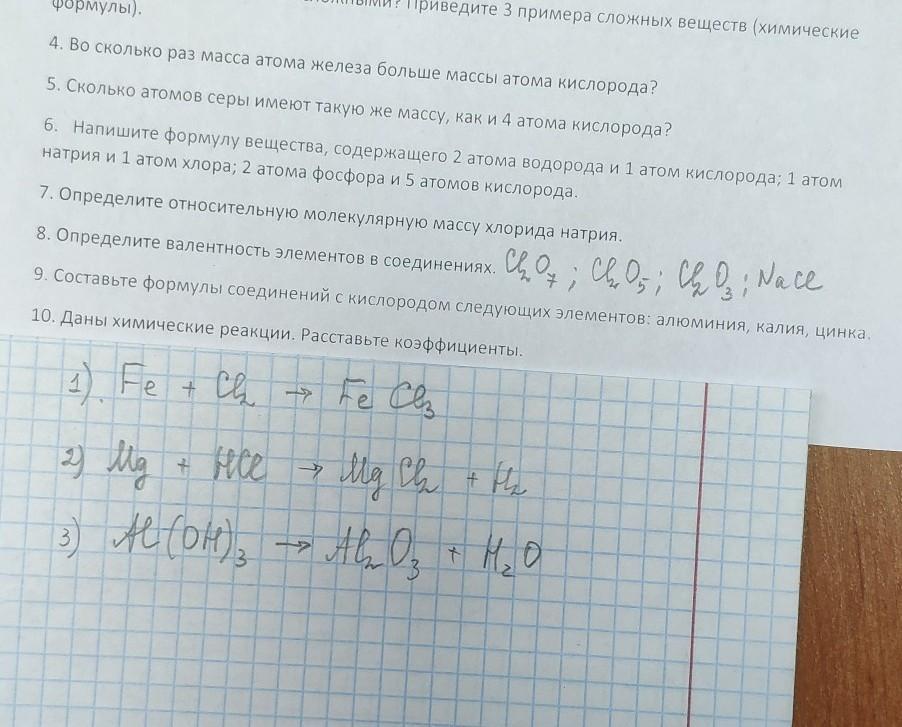 Приведите 3 примера сложных веществ (химические
формулы).
4. Во сколько раз масса атома железа больше массы атома кислорода?
5. Сколько атомов серы имеют такую же массу, как и 4 атома кислорода?
6. Напишите формулу вещества, содержащего 2 атома водорода и 1 атом кислорода; 1 атом
натрия и 1 атом хлора; 2 атома фосфора и 5 атомов кислорода.
7. Определите относительную молекулярную массу хлорида натрия.
8. Определите валентность элементов в соединениях. Cl₂O₇; Cl₂O₅; Cl₂O₃; NaCl
9. Составьте формулы соединений с кислородом следующих элементов: алюминия, калия, цинка.
10. Даны химические реакции. Расставьте коэффициенты.
1). Fe + Cl₂ → FeCl₃
2) Mg + HCl → MgCl₂ + H₂
3) Al(OH)₃ → Al₂O₃ + H₂O